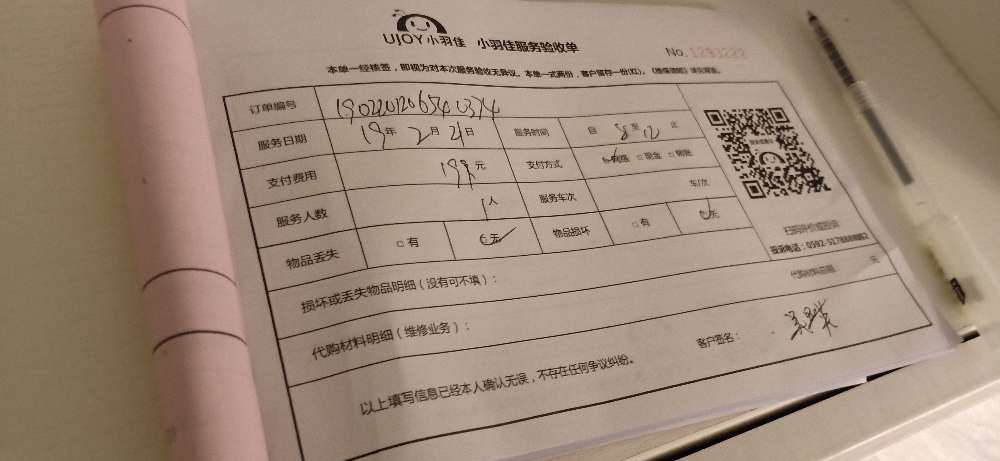 UJOY小羽佳 小羽佳服务验收单
No. 1293222
本单一经核签，即视为对本次服务验收无异议。本单一式两份，客户留存一份(红)。
订单编号
服务日期 19年 2月 21日 服务时间 自 8 至 12 止
支付费用 198元 支付方式 网络 □ 现金 □
服务人数 1人 服务车次 车/次
物品丢失 □ 有 无 物品损坏 □ 有 无
损坏或丢失物品明细（没有可不填）：
代购材料明细（维修业务）： 代购材料总额： 元
以上填写信息已经本人确认无误，不存在任何争议纠纷。 客户签名：